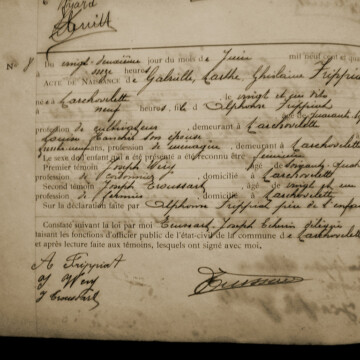 Nº 8 Du vingt-deuxième jour du mois de Juin mil neuf cent
onze heures
ACTE DE NAISSANCE de Gabrielle, Marthe, Ghislaine Frippiat
né à Larchovelette le vingt et un dito
à neuf heures, fil d Alphonse Frippiat
âgé de quarante
profession de cultivateur, demeurant à Larchovelette
son épouse
profession de ménagère, demeurant à Larchovelette
Le sexe de l'enfant qui a été présenté a été reconnu être féminin
Premier témoin Joseph Wéry, âgé de soixante-quatre
profession de, domicilié à Larchovelette
Second témoin Joseph Troussart, âgé de vingt et un
profession de, domicilié à Larchovelette
Sur la déclaration faite par Alphonse Frippiat père de l'enfant
Constaté suivant la loi par moi Joseph échevin délégué
faisant les fonctions d'officier public de l'état-civil de la commune de Larchovelette
et après lecture faite aux témoins, lesquels ont signé avec moi.
A Frippiat
J Wéry
J Troussart